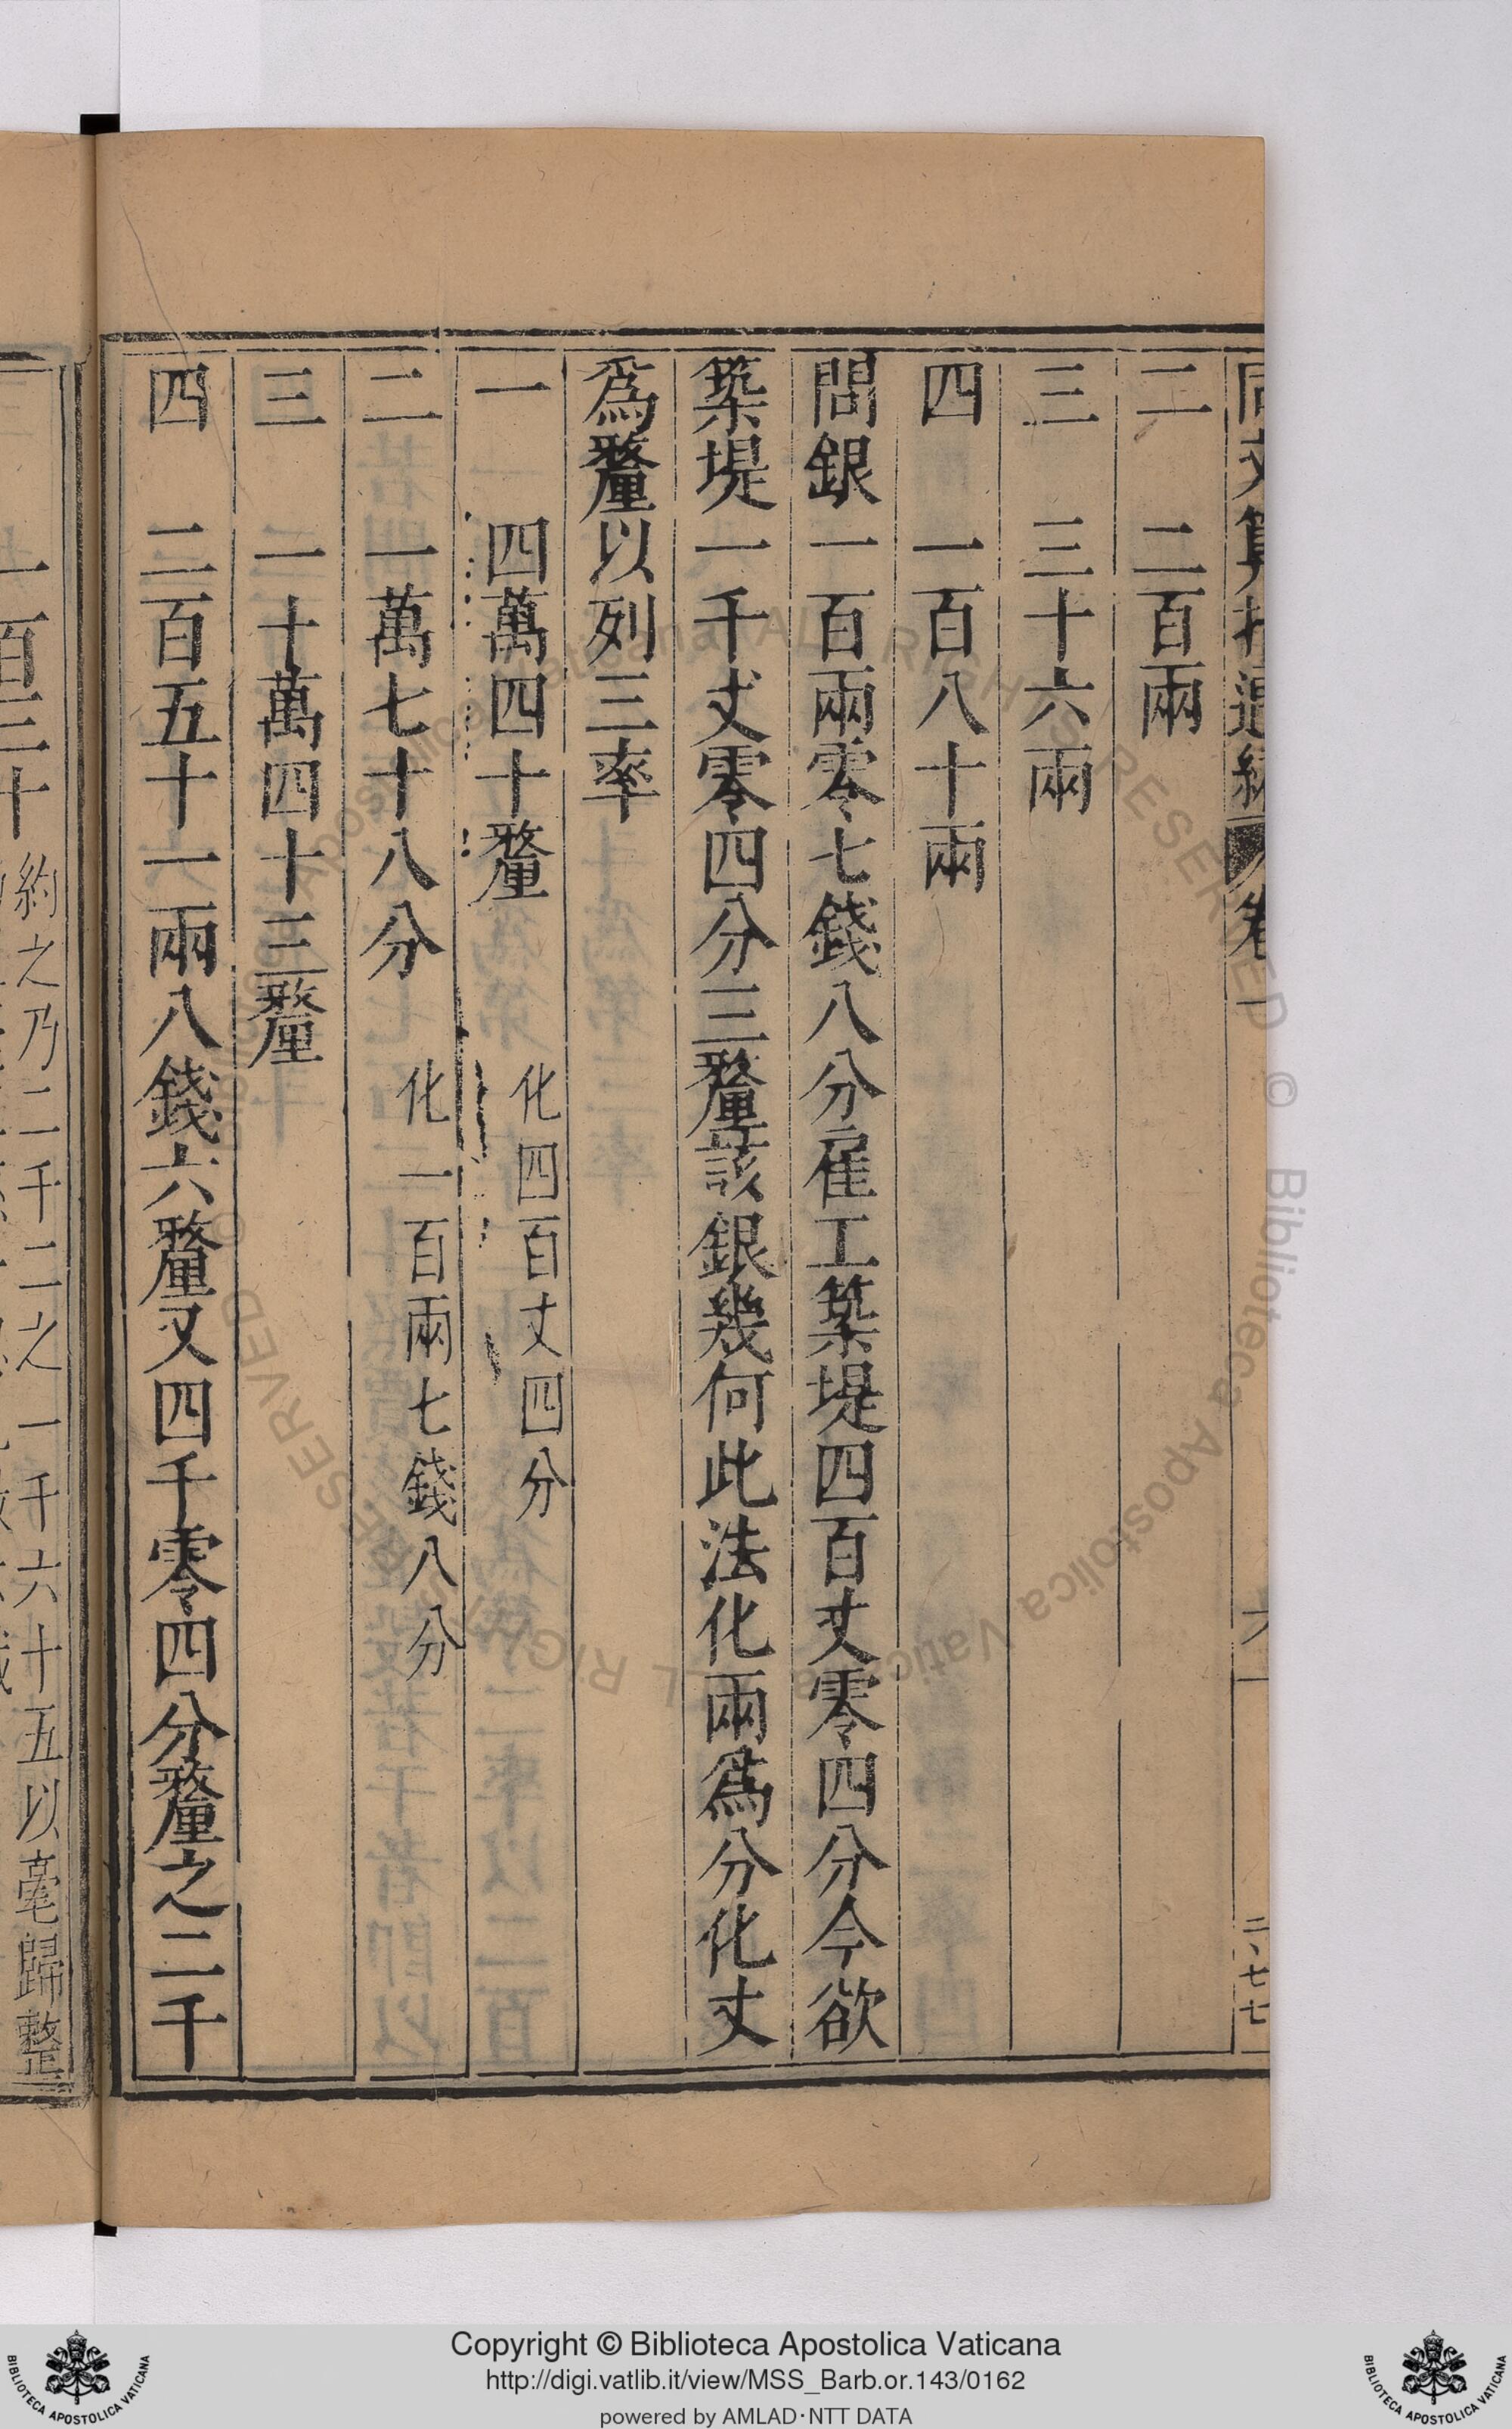 二　二百兩
三　三十六兩
四　一百八十兩
問銀一百兩零七錢八分雇工築堤四百丈零四分今欲
築堤一千丈零四分三釐該銀幾何此法化兩爲分化丈
爲釐以列三率
一　四萬四十釐　化四百丈四分
二　一萬七十八分　化一百兩七錢八分
三　一十萬四十三釐
四　二百五十一兩八錢六釐又四千零四分釐之二千
約之乃二千二之一千六十五以毫歸整
一百三十
Copyright © Biblioteca Apostolica Vaticana
http://digi.vatlib.it/view/MSS_Barb.or.143/0162
powered by AMLAD·NTT DATA
BIBLIOTECA APOSTOLICA VATICANA
BIBLIOTECA APOSTOLICA VATICANA